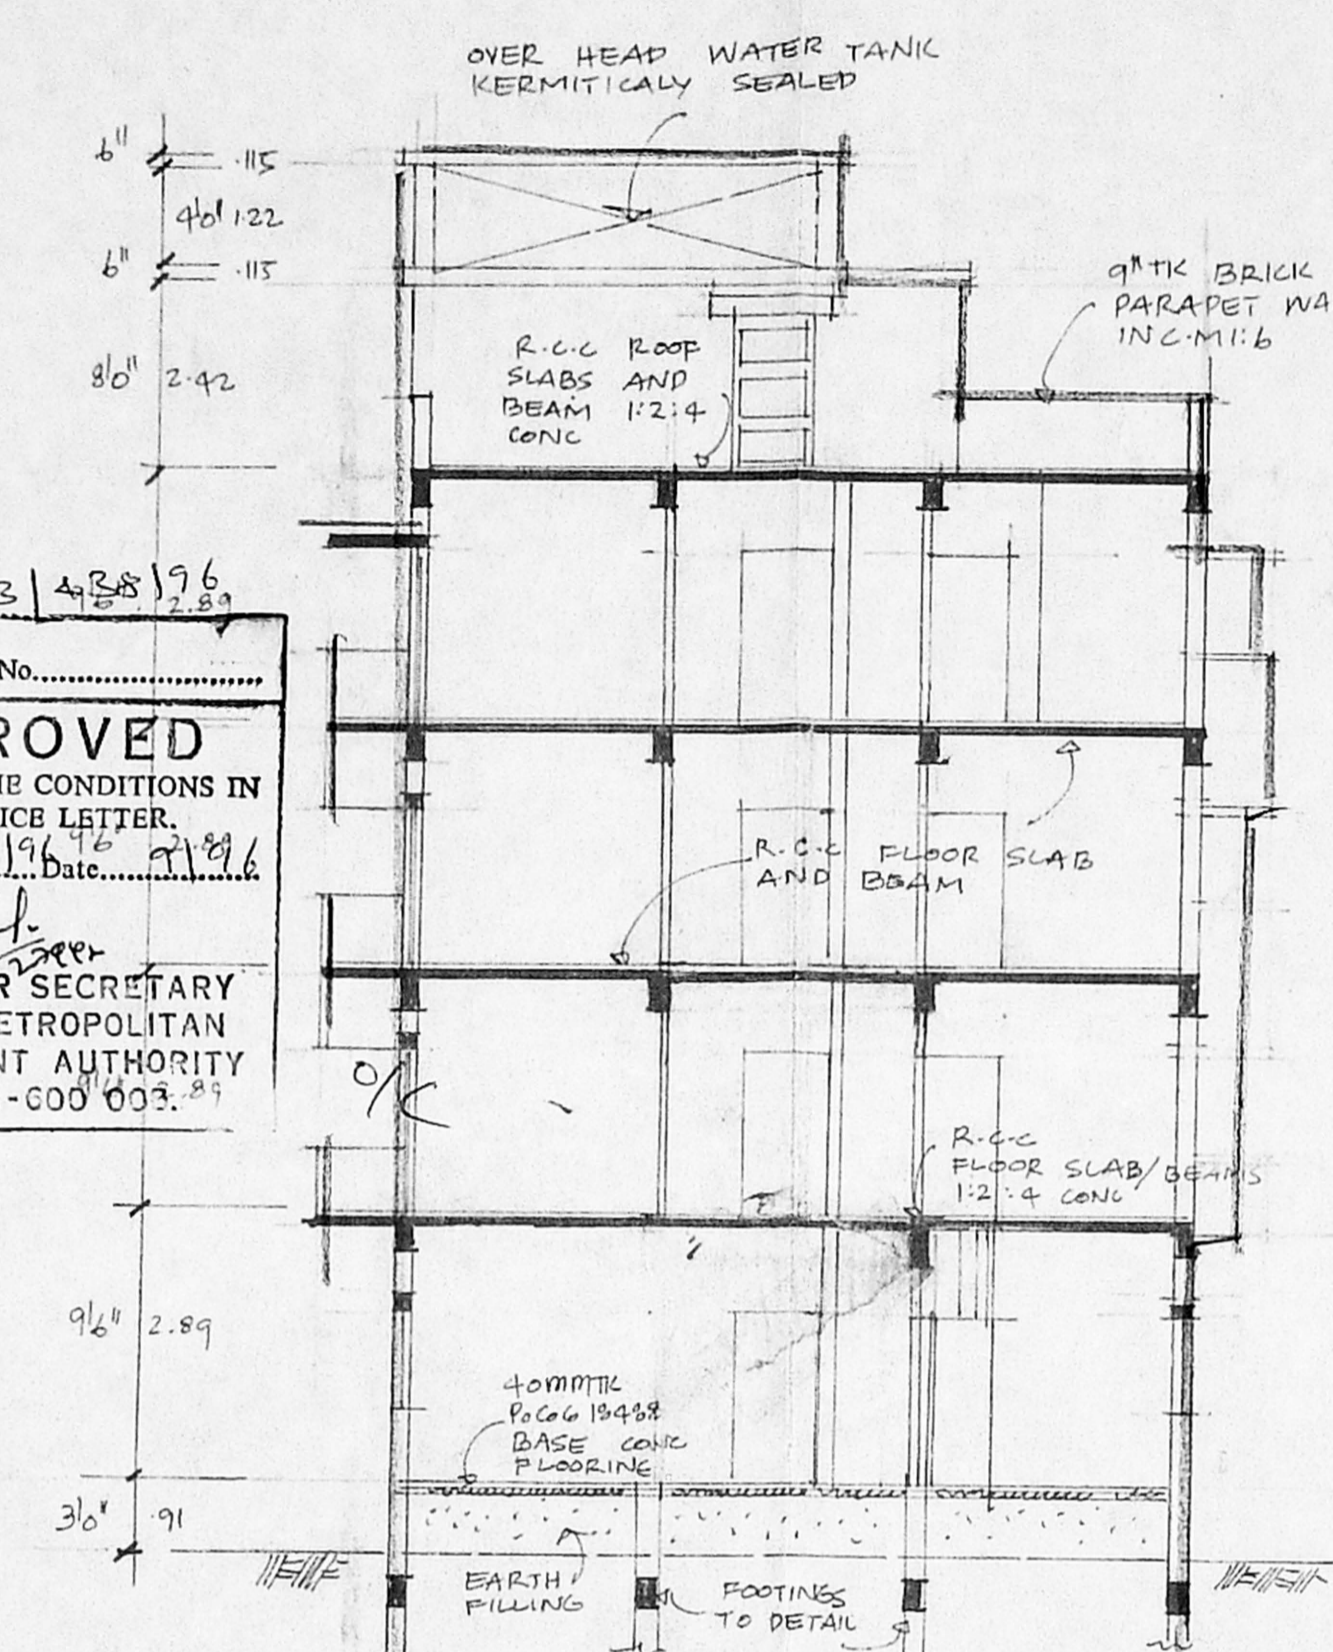 OVER HEAD WATER TANK
KERMITICALY SEALED
6"
.115
4'0" 1.22
6"
.115
9" TK BRICK
PARAPET WA
IN C.M 1:6
R.C.C ROOF
SLABS AND
BEAM 1:2:4
CONC
8'0" 2.42
96
2.89
No.
ROVED
IE CONDITIONS IN
ICE LETTER.
9'6" 2.89
Date
R SECRETARY
ETROPOLITAN
NT AUTHORITY
-600 003.
9'6" 2.89
R.C.C FLOOR SLAB
AND BEAM
O/C
R.C.C
FLOOR SLAB/BEAMS
1:2:4 CONC
9'6" 2.89
40MMTK
P.C.C 1:4:8
BASE CONC
FLOORING
3'0" .91
EARTH
FILLING
FOOTINGS
TO DETAIL